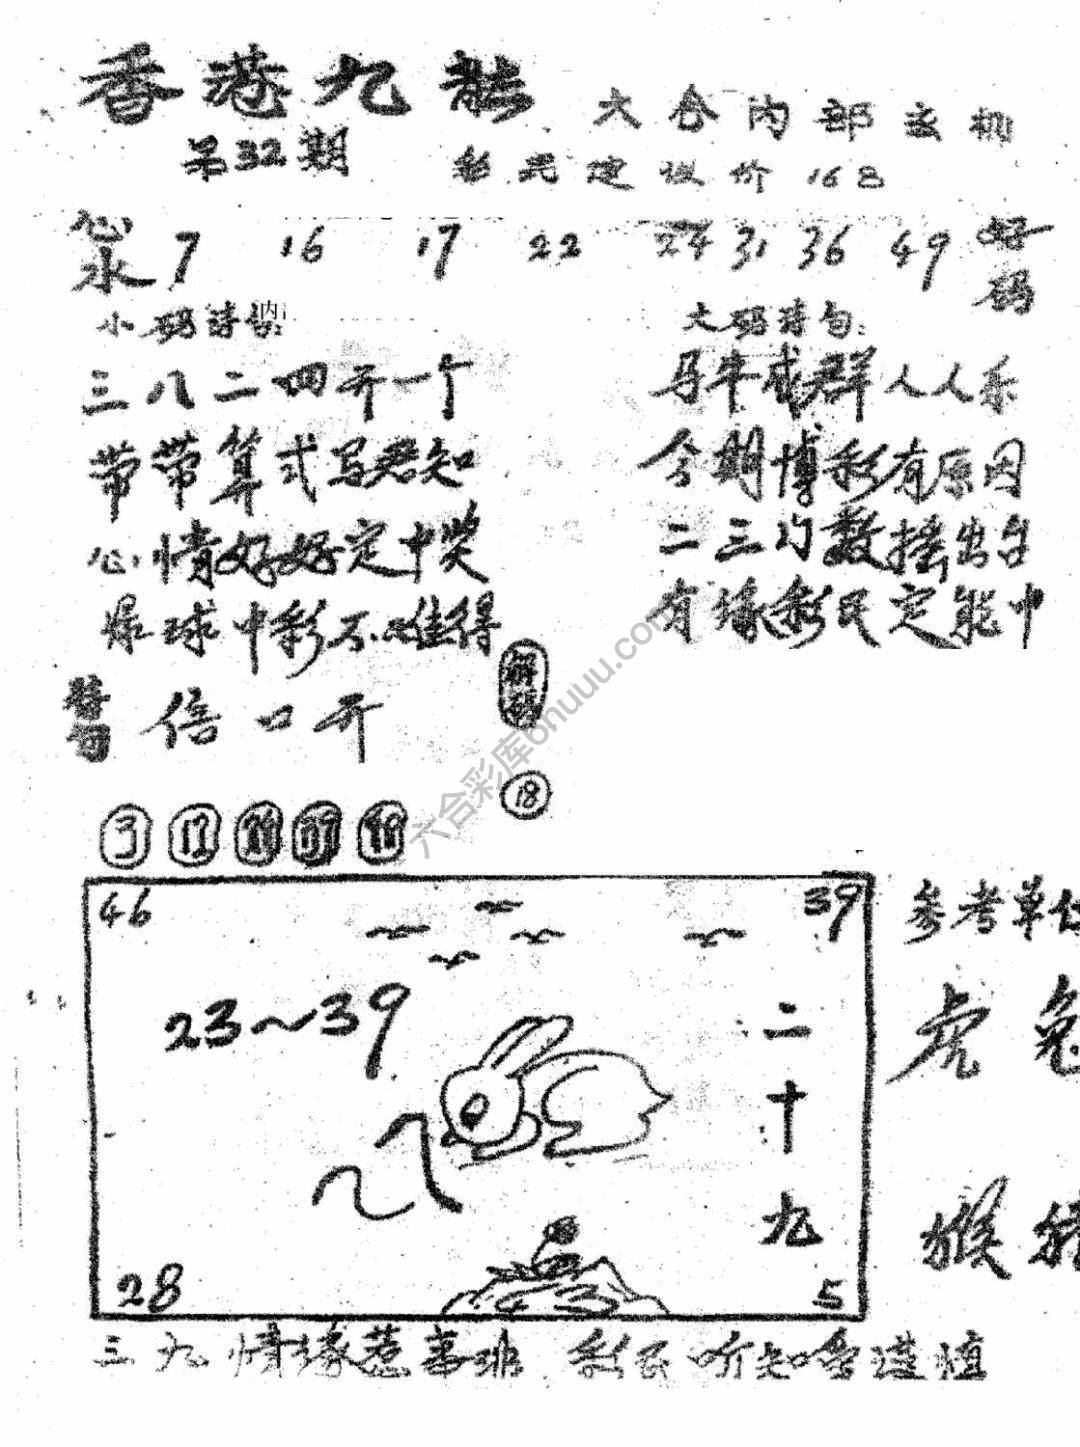 香港九龍
六合内部玄机
第32期
彩民建议价168
心水 7 16 17 22 24 31 36 49 好码
小码诗句:
三八二四开一个
带带算式写君知
心情好好定中奖
爆球中彩不难得
大码诗句:
马牛成群人人乐
今期博彩有原因
二三门数摇出台
有缘彩民定能中
解码
信口开
18
3 12
46 39
23~39
二十九
28 5
参考单
虎 兔
猴
三九情缘惹
六合彩库ohuuu.com